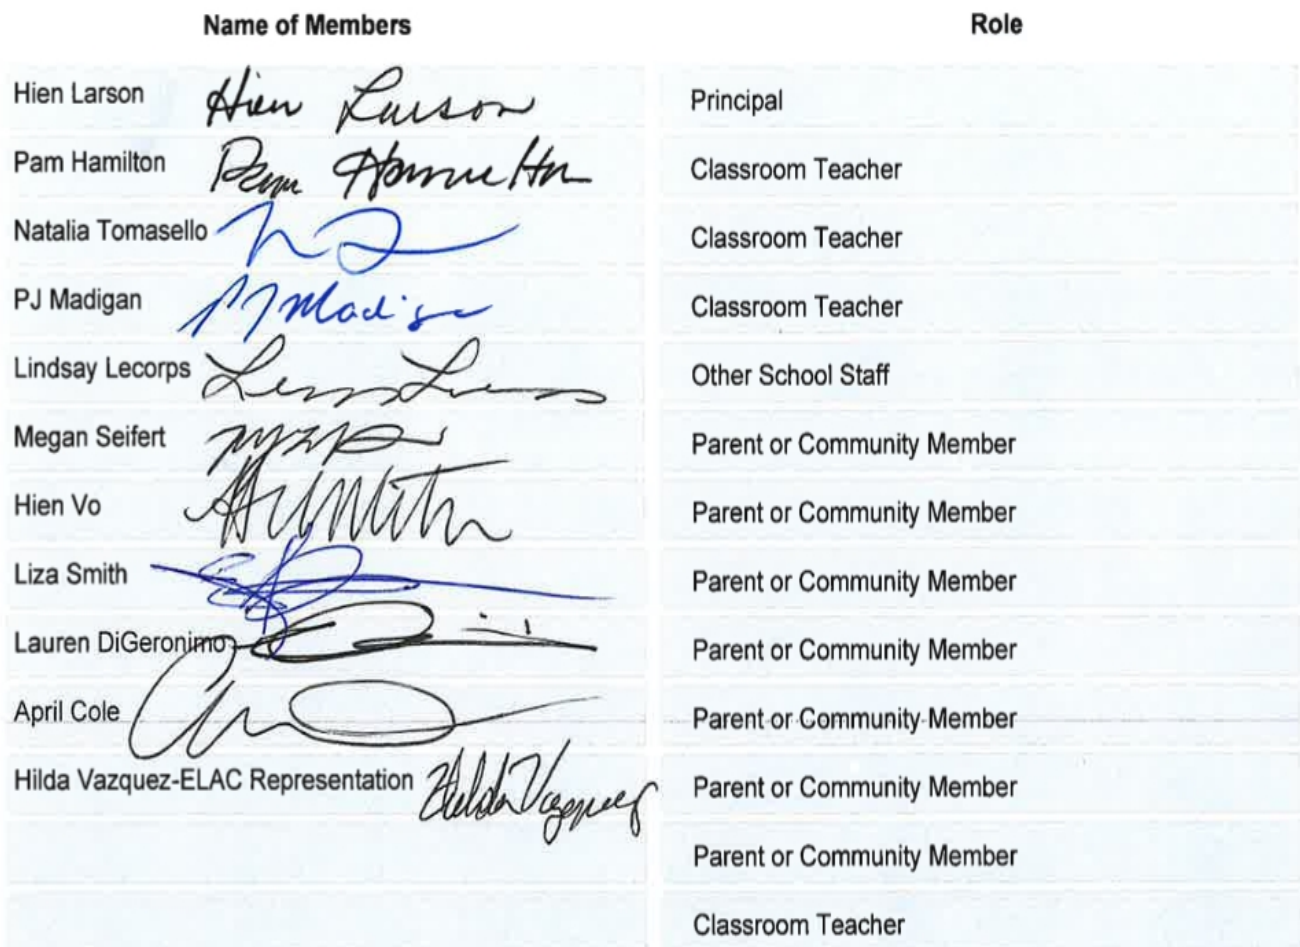 Name of Members Role
Hien Larson Hien Larson Principal
Pam Hamilton Pam Hamilton Classroom Teacher
Natalia Tomasello Classroom Teacher
PJ Madigan PJ Madigan Classroom Teacher
Lindsay Lecorps Other School Staff
Megan Seifert Parent or Community Member
Hien Vo Parent or Community Member
Liza Smith Parent or Community Member
Lauren DiGeronimo Parent or Community Member
April Cole Parent or Community Member
Hilda Vazquez-ELAC Representation Hilda Vazquez Parent or Community Member
Parent or Community Member
Classroom Teacher